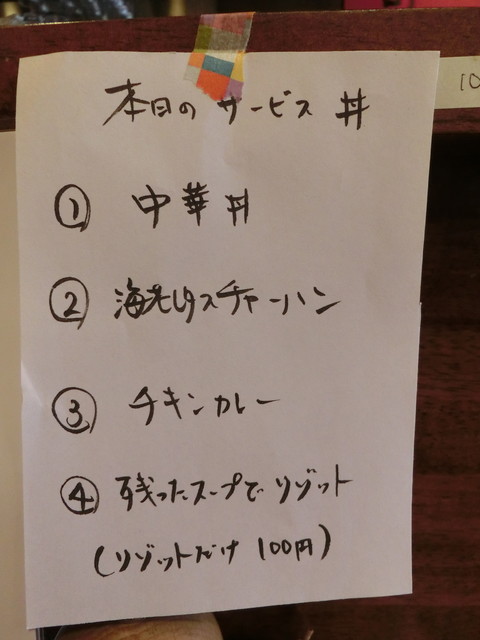 本日のサービス丼
① 中華丼
② 海老レタスチャーハン
③ チキンカレー
④ 残ったスープでリゾット
(リゾットだけ 100円)
10